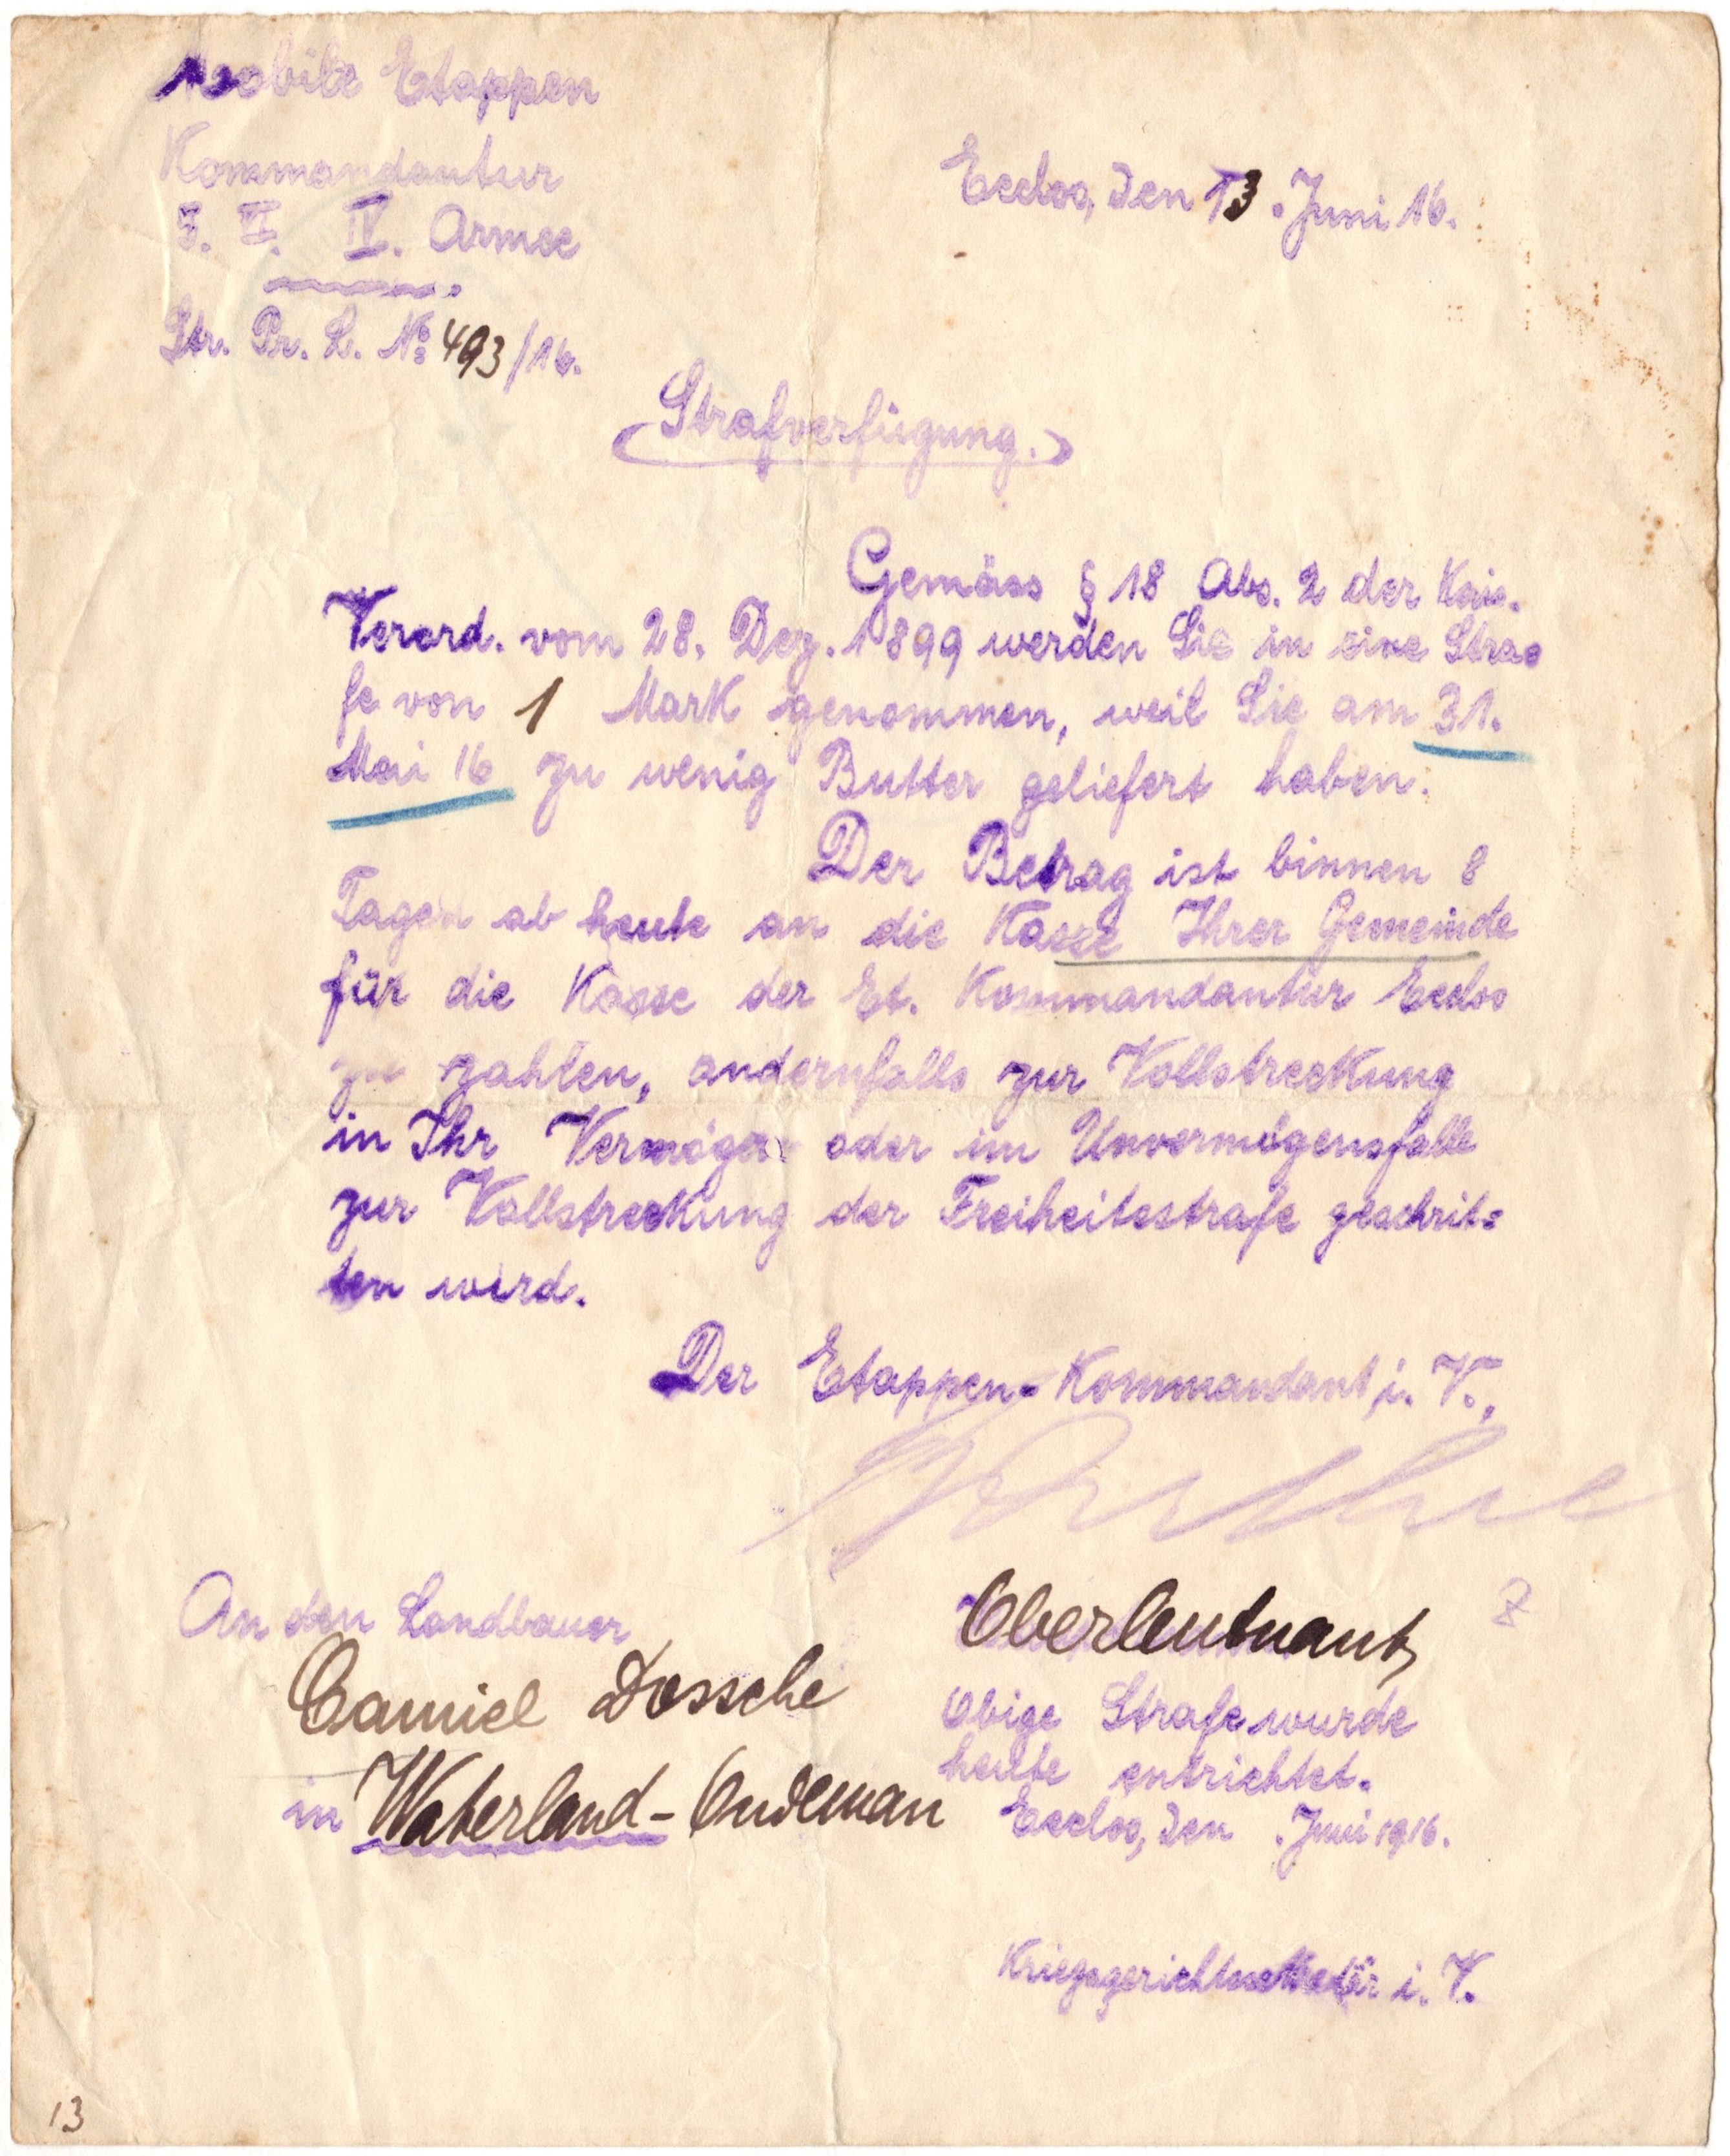 Mobile Etappen
Kommandantur
IV. Armee
Eecloo, den 13. Juni 16.
Str. Pr. L. № 493/16.
Strafverfügung.
Gemäss § 18 Abs. 2 der Kais.
Verord. vom 28. Dez. 1899 werden Sie in eine Stra=
fe von 1 Mark genommen, weil Sie am 31.
Mai 16 zu wenig Butter geliefert haben.
Der Betrag ist binnen 8
Tagen ab heute an die Kasse Ihrer Gemeinde
für die Kasse der Et. Kommandantur Eecloo
zu zahlen, andernfalls zur Vollstreckung
in Ihr Vermögen oder im Unvermögensfalle
zur Vollstreckung der Freiheitsstrafe geschrit=
ten wird.
Der Etappen-Kommandant i. V.,
Oberleutnant
An den Landbauer
Camiel Dossche
in Waterland-Oudeman
Obige Strafe wurde
heute entrichtet.
Eecloo, den . Juni 1916.
Kriegsgerichtssekretär i. V.
13